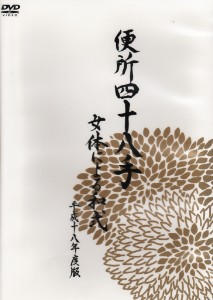 DVD
VIDEO
便所四十八手
女体による和式
平成十八年度版